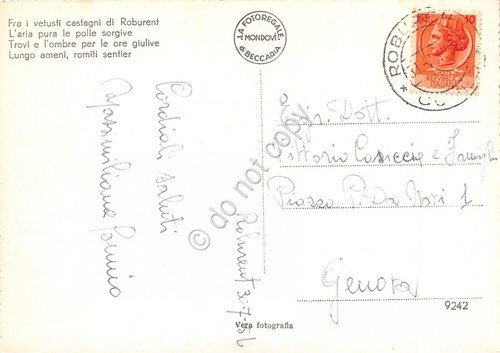 Fra i vetusti castagni di Roburent
L'aria pura le polle sorgive
Trovi e l'ombre per le ore giulive
Lungo ameni, romiti sentier
LA FOTOREGALE
MONDOVÌ
di BECCARIA
10
Cordiali saluti
Massimiliana
Roburent
Egr. Dott.
Vittorio e Famiglia
Piazza P. Da Novi 1
Genova
do not copy
Vera fotografia
9242